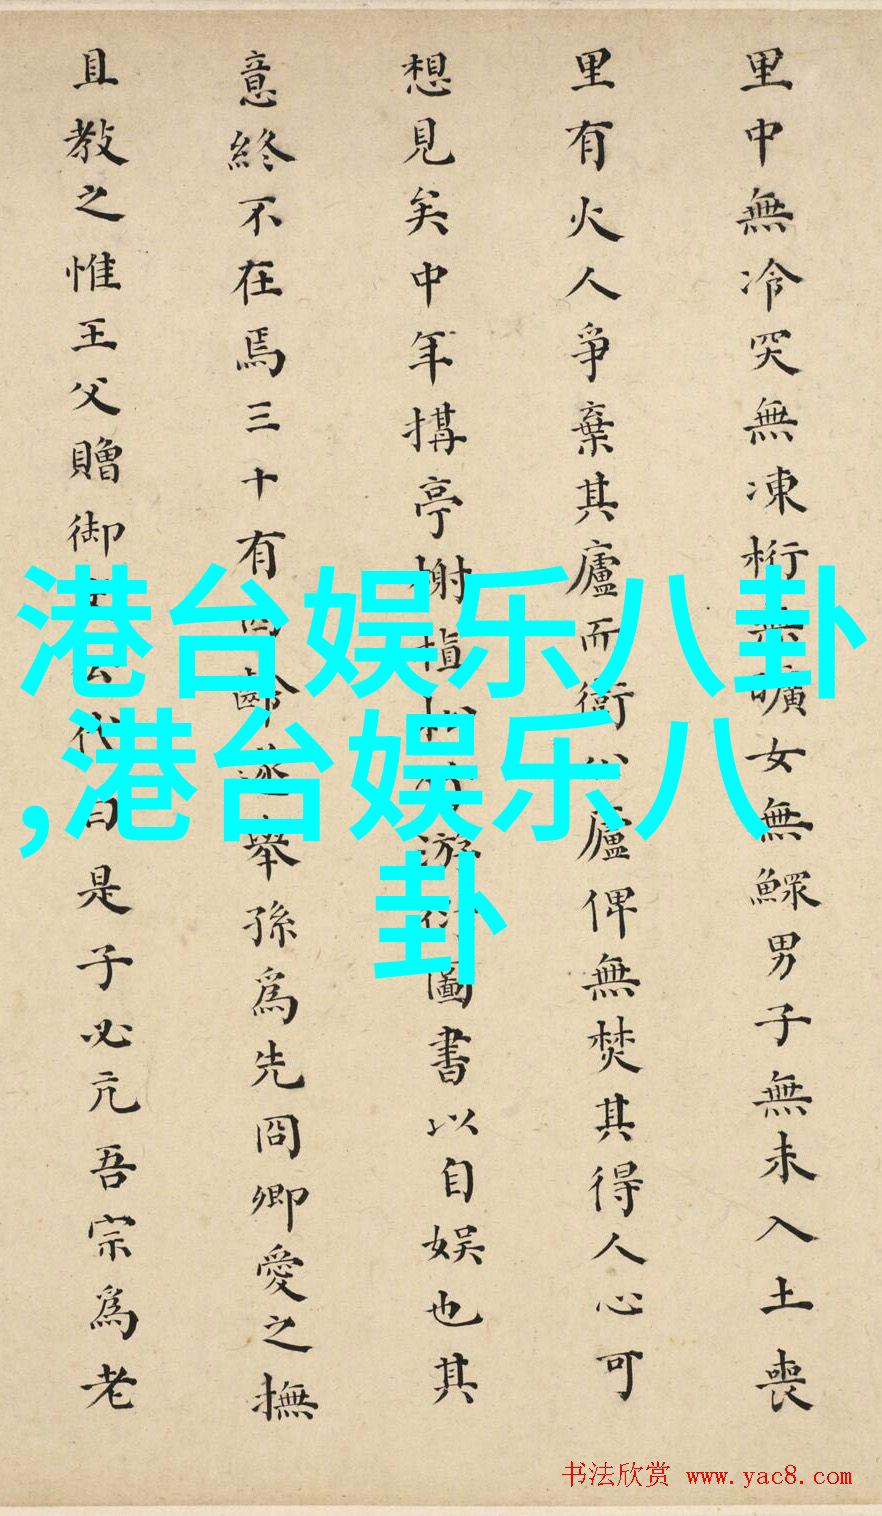 里中無冷突無凍桁無曠女無鰥男子無未入土喪
里有火人爭棄其廬而衛公廬俾無焚其得人心可
想見矣中年搆亭榭植松竹游行圖書以自娛也其
意終不在焉三十有齡遂舉孫為先冏卿愛之撫
且教之惟王父贈御代曰是子必亢吾宗為老
港台娱乐八卦
,港台娱乐八
卦
书法欣赏 www.yac8.com